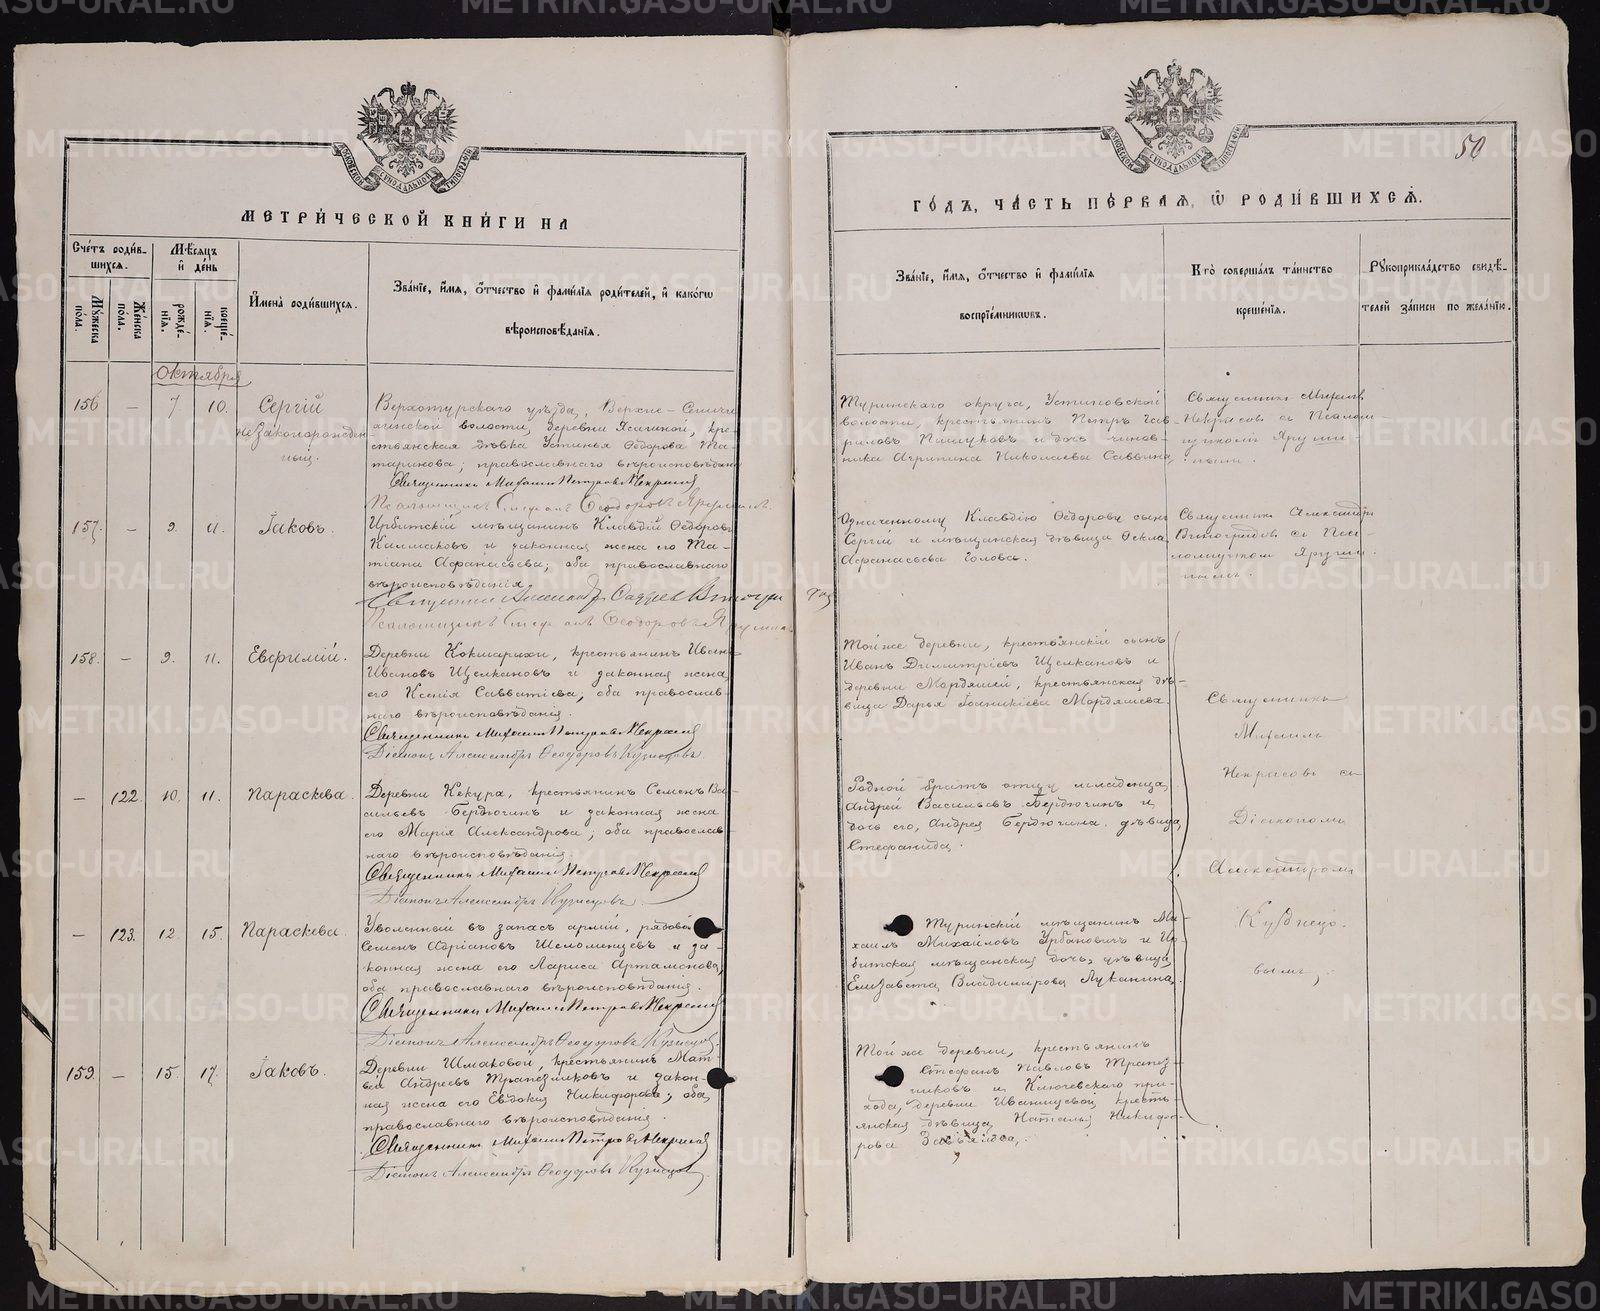 МЕТРИ́ЧЕСКОЙ КНИ́ГИ НА
Сче́тъ роди́вшихся.
Мѣ́сяцъ и де́нь
Имена̀ роди́вшихся.
Зва́нїе, и́мя, о́тчество и фами́лїя роди́телей, и како́гѡ
вѣроисповѣ́данїя.
Му́жеска пола.
Же́нска пола.
рожде́нїя.
креще́нїя.
Октября
156 — 7 10. Сергій
незаконорожден
ный.
Верхотурскаго уѣзда,
волости, деревни кре-
стьянская дѣвка Устинья Ѳедорова Та-
таринова; православнаго вѣроисповѣданія
Священникъ Михаилъ Петровъ Некрасов
Псаломщикъ Стефанъ Ѳеодоровъ
157. — 9. 11. Іаковъ.
Ирбитскій мѣщанинъ Клавдій Ѳедоровъ
Калмаковъ и законная жена его Та-
тіана Аѳанасьева; оба православнаго
вѣроисповѣданія
Священникъ Александръ
Псаломщикъ Стефанъ Ѳеодоровъ
158. — 9. 11. Евѳимій.
Деревни крестьянинъ Иванъ
Ивановъ Щелкановъ и законная жена
его Ксенія Савватіева; оба православ-
наго вѣроисповѣданія.
Священникъ Михаилъ Петровъ Некрасов
Діаконъ Александръ Ѳеодоровъ Кузнецовъ.
— 122. 10. 11. Параскева.
Деревни Кекура, крестьянинъ Семенъ Ва-
сильевъ Бердюгинъ и законная жена
его Марія Александрова; оба православ-
наго вѣроисповѣданія.
Священникъ Михаилъ Петровъ Некрасов
Діаконъ Александръ Кузнецовъ.
— 123. 12. 15. Параскева.
Уволенный въ запасъ арміи, рядовой
Семенъ Адріановъ Шеломенцевъ и за-
конная жена его Лариса Артамонова,
оба православнаго вѣроисповѣданія.
Священникъ Михаилъ Петровъ Некрасов
Діаконъ Александръ Ѳеодоровъ Кузнецов
159. — 15. 17. Іаковъ.
Деревни Шмаковой, крестьянинъ Мат-
вій Андреевъ Трапезниковъ и закон-
ная жена его Евдокія Никифорова; оба
православнаго вѣроисповѣданія.
Священникъ Михаилъ Петровъ Некрасов
Діаконъ Александръ Ѳеодоровъ Кузнецов
50
ГО́ДЪ, ЧА́СТЬ ПЕ́РВАЯ, Ѡ РОДИ́ВШИХСЯ.
Зва́нїе, и́мя, о́тчество и фами́лїя
воспрїе́мниковъ.
Кто̀ соверша́лъ та́инство
креще́нїя.
Рукоприкла́дство свидѣ́-
телей за́писи по жела́нїю.
Туринскаго округа, Устиновской
волости, крестьянинъ Петръ Гав-
риловъ и дочь чинов-
ника Агрипина Николаева Саввина,
Священникъ Михаилъ
Некрасовъ съ Псалом-
щикомъ
Означенному Клавдію Ѳедорову сынъ
Сергій и мѣщанская дѣвица Ѳекла
Аѳанасьева
Священникъ Александръ
Виноградовъ съ Пса-
ломщикомъ
Той же деревни, крестьянскій сынъ
Иванъ Димитріевъ Щелкановъ и
деревни Мордяшей, крестьянская дѣ-
вица Дарья Іоаникіева Мордяшева.
Родной братъ отцу младенца,
Андрей Васильевъ Бердюгинъ и
дочь его, Андрея Бердюгина дѣвица,
Стефанида.
Туринскій мѣщанинъ Ми-
хаилъ Михайловъ Урбановичъ и Ир-
битская мѣщанская дочь, дѣвица,
Елизавета Владимірова Луканина.
Той же деревни, крестьянинъ
Стефанъ Павловъ Трапез-
никовъ и Ключевскаго при-
хода, деревни Иванищевой, кресть-
янская дѣвица Наталья Никифо-
рова
Священникъ
Михаилъ
Некрасовъ съ
Діакономъ
Александромъ
Кузнецо-
вымъ.
METRIKI.GASO-URAL.RU